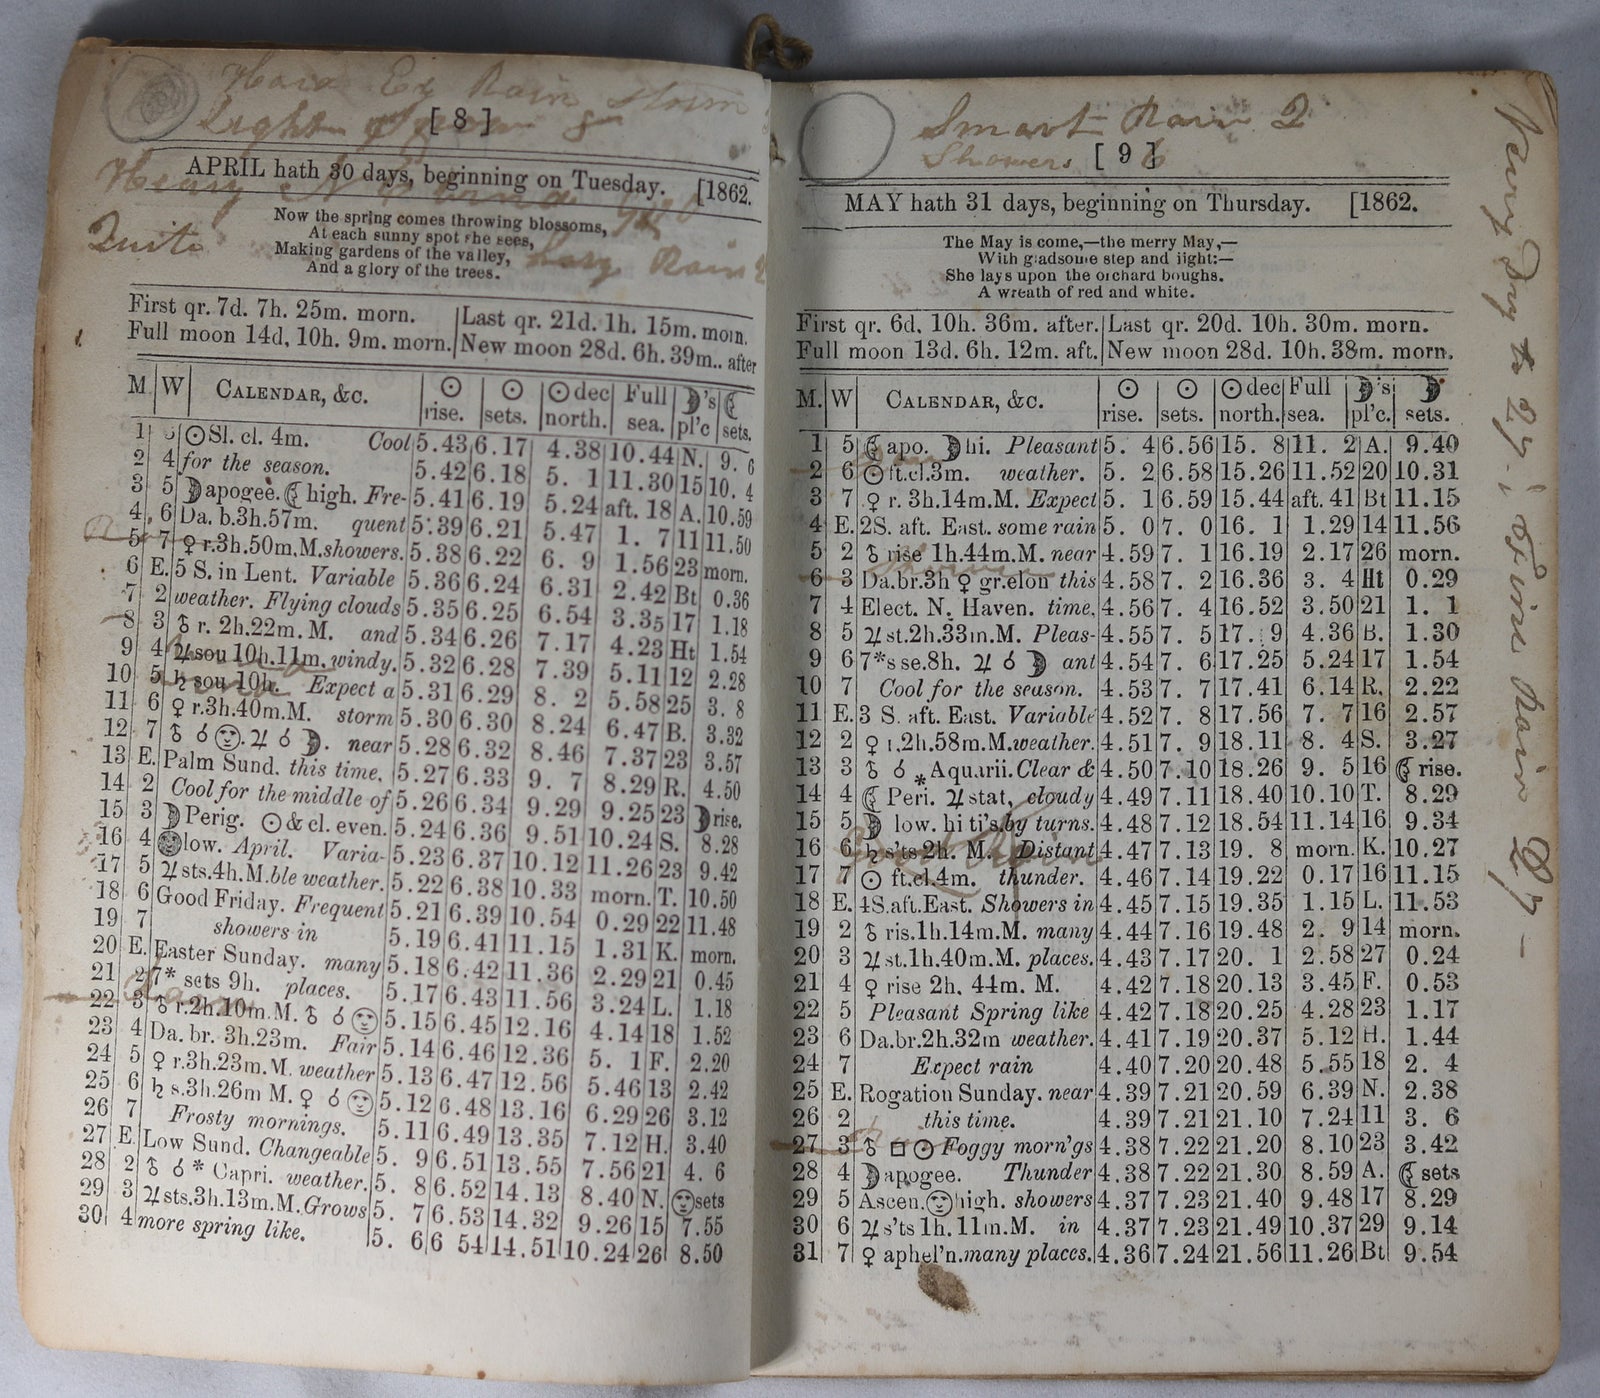 Rain Storm
[ 8 ]
APRIL hath 30 days, beginning on Tuesday. [1862.
Quite
Now the spring comes throwing blossoms,
At each sunny spot she sees,
Making gardens of the valley,
And a glory of the trees.
Rain
First qr. 7d. 7h. 25m. morn. Last qr. 21d. 1h. 15m. morn.
Full moon 14d. 10h. 9m. morn. New moon 28d. 6h. 39m.. after
M W CALENDAR, &C. ☉ rise. ☉ sets. ☉ dec north. Full sea. ☽'s pl'c ☾ sets.
1 3 ☉Sl. cl. 4m. Cool 5.43 6.17 4.38 10.44 N. 9. 6
2 4 for the season. 5.42 6.18 5. 1 11.30 15 10. 4
3 5 ☽apogee. ☾high. Fre- 5.41 6.19 5.24 aft. 18 A. 10.59
4 6 Da. b.3h.57m. quent 5.39 6.21 5.47 1. 7 11 11.50
5 7 ♀ r.3h.50m.M. showers. 5.38 6.22 6. 9 1.56 23 morn.
6 E. 5 S. in Lent. Variable 5.36 6.24 6.31 2.42 Bt 0.36
7 2 weather. Flying clouds 5.35 6.25 6.54 3.35 17 1.18
8 3 ♁ r. 2h.22m. M. and 5.34 6.26 7.17 4.23 Ht 1.54
9 4 ♃sou 10h.11m. windy. 5.32 6.28 7.39 5.11 12 2.28
10 5 ♄ sou 10h. Expect a 5.31 6.29 8. 2 5.58 25 3. 8
11 6 ♀ r.3h.40m.M. storm 5.30 6.30 8.24 6.47 B. 3.32
12 7 ♁ ☌ ☉. ♃ ☌ ☽. near 5.28 6.32 8.46 7.37 23 3.57
13 E. Palm Sund. this time. 5.27 6.33 9. 7 8.29 R. 4.50
14 2 Cool for the middle of 5.26 6.34 9.29 9.25 23 ☽rise.
15 3 ☽Perig. ☉& cl. even. 5.24 6.36 9.51 10.24 S. 8.28
16 4 low. April. Varia- 5.23 6.37 10.12 11.26 23 9.42
17 5 ♃sts.4h.M. ble weather. 5.22 6.38 10.33 morn. T. 10.50
18 6 Good Friday. Frequent 5.21 6.39 10.54 0.29 22 11.48
19 7 showers in 5.19 6.41 11.15 1.31 K. morn.
20 E. Easter Sunday. many 5.18 6.42 11.36 2.29 21 0.45
21 2 7* sets 9h. places. 5.17 6.43 11.56 3.24 L. 1.18
22 3 ♁ r.2h.10m.M. ♁ ☌ ☉ 5.15 6.45 12.16 4.14 18 1.52
23 4 Da. br. 3h.23m. Fair 5.14 6.46 12.36 5. 1 F. 2.20
24 5 ♀ r.3h.23m.M. weather 5.13 6.47 12.56 5.46 13 2.42
25 6 ♄ s.3h.26m M. ♀ ☌ ☉ 5.12 6.48 13.16 6.29 26 3.12
26 7 Frosty mornings. 5.11 6.49 13.35 7.12 H. 3.40
27 E. Low Sund. Changeable 5. 9 6.51 13.55 7.56 21 4. 6
28 2 ♁ ☌ * Capri. weather. 5. 8 6.52 14.13 8.40 N. ☉sets
29 3 ♃sts.3h.13m.M. Grows 5. 7 6.53 14.32 9.26 15 7.55
30 4 more spring like. 5. 6 6 54 14.51 10.24 26 8.50
Smart Rain 2
Showers
[ 9 ]
MAY hath 31 days, beginning on Thursday. [1862.
The May is come,—the merry May,—
With gladsome step and light:—
She lays upon the orchard boughs.
A wreath of red and white.
First qr. 6d. 10h. 36m. after. Last qr. 20d. 10h. 30m. morn.
Full moon 13d. 6h. 12m. aft. New moon 28d. 10h. 38m. morn.
M. W CALENDAR, &C. ☉ rise. ☉ sets. ☉ dec north. Full sea. ☽'s pl'c. ☽ sets.
1 5 ☾ apo. ☽hi. Pleasant 5. 4 6.56 15. 8 11. 2 A. 9.40
2 6 ☉ft.cl.3m. weather. 5. 2 6.58 15.26 11.52 20 10.31
3 7 ♀ r. 3h.14m.M. Expect 5. 1 6.59 15.44 aft. 41 Bt 11.15
4 E. 2S. aft. East. some rain 5. 0 7. 0 16. 1 1.29 14 11.56
5 2 ♁ rise 1h.44m.M. near 4.59 7. 1 16.19 2.17 26 morn.
6 3 Da.br.3h ♀ gr.elon this 4.58 7. 2 16.36 3. 4 Ht 0.29
7 4 Elect. N. Haven. time. 4.56 7. 4 16.52 3.50 21 1. 1
8 5 ♃st.2h.33m.M. Pleas- 4.55 7. 5 17. 9 4.36 B. 1.30
9 6 7*s se.8h. ♃ ☌ ☽ ant 4.54 7. 6 17.25 5.24 17 1.54
10 7 Cool for the season. 4.53 7. 7 17.41 6.14 R. 2.22
11 E. 3 S. aft. East. Variable 4.52 7. 8 17.56 7. 7 16 2.57
12 2 ♀ r.2h.58m.M. weather. 4.51 7. 9 18.11 8. 4 S. 3.27
13 3 ♁ ☌ * Aquarii. Clear & 4.50 7.10 18.26 9. 5 16 ☾rise.
14 4 ☾ Peri. ♃ stat, cloudy 4.49 7.11 18.40 10.10 T. 8.29
15 5 ☽ low. hi ti's. by turns. 4.48 7.12 18.54 11.14 16 9.34
16 6 ♄ s'ts 2h. M. Distant 4.47 7.13 19. 8 morn. K. 10.27
17 7 ☉ ft.cl.4m. thunder. 4.46 7.14 19.22 0.17 16 11.15
18 E. 4S.aft.East. Showers in 4.45 7.15 19.35 1.15 L. 11.53
19 2 ♁ ris.1h.14m.M. many 4.44 7.16 19.48 2. 9 14 morn.
20 3 ♃st.1h.40m.M. places. 4.43 7.17 20. 1 2.58 27 0.24
21 4 ♀ rise 2h. 44m. M. 4.42 7.18 20.13 3.45 F. 0.53
22 5 Pleasant Spring like 4.42 7.18 20.25 4.28 23 1.17
23 6 Da.br.2h.32m weather. 4.41 7.19 20.37 5.12 H. 1.44
24 7 Expect rain 4.40 7.20 20.48 5.55 18 2. 4
25 E. Rogation Sunday. near 4.39 7.21 20.59 6.39 N. 2.38
26 2 this time. 4.39 7.21 21.10 7.24 11 3. 6
27 3 ♁ □ ☉ Foggy morn'gs 4.38 7.22 21.20 8.10 23 3.42
28 4 ☽apogee. Thunder 4.38 7.22 21.30 8.59 A. ☾sets
29 5 Ascen. high. showers 4.37 7.23 21.40 9.48 17 8.29
30 6 ♃s'ts 1h. 11m.M. in 4.37 7.23 21.49 10.37 29 9.14
31 7 ♀ aphel'n. many places. 4.36 7.24 21.56 11.26 Bt 9.54
Very Dry to 27. Fine Rain 27